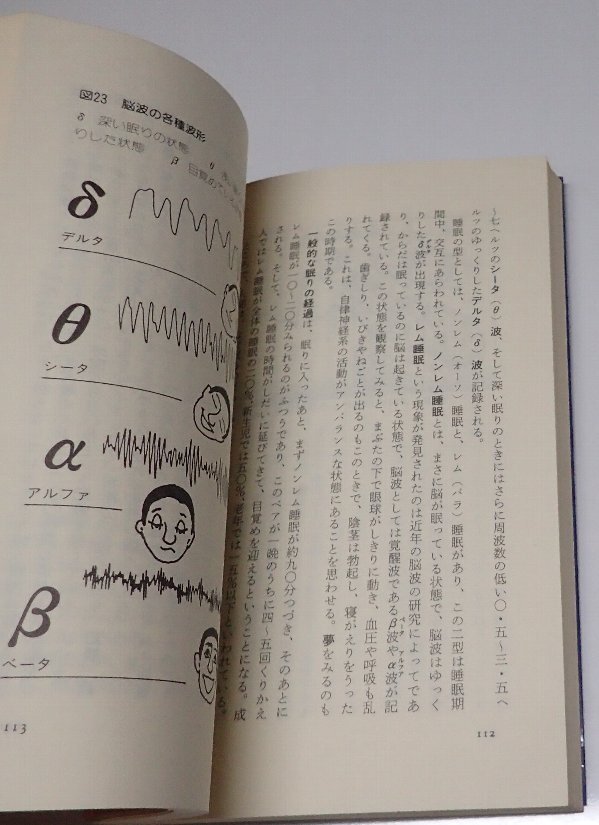 ～七ヘルツのシータ（θ）波、そして深い眠りのときにはさらに周波数の低い〇・五～三・五ヘ
ルツのゆっくりしたデルタ（δ）波が記録される。
睡眠の型としては、ノンレム（オーソ）睡眠と、レム（パラ）睡眠があり、この二型は睡眠期
間中、交互にあらわれている。ノンレム睡眠とは、まさに脳が眠っている状態で、脳波はゆっく
りしたδ波が出現する。レム睡眠という現象が発見されたのは近年の脳波の研究によってであ
り、からだは眠っているのに脳は起きている状態で、脳波としては覚醒波であるβ波やα波が記
録されている。この状態を観察してみると、まぶたの下で眼球がしきりに動き、血圧や呼吸も乱
れてくる。歯ぎしり、いびきやねごとが出るのもこのときで、陰茎は勃起し、寝がえりをうった
りする。これは、自律神経系の活動がアンバランスな状態にあることを思わせる。夢をみるのも
この時期である。
一般的な眠りの経過は、眠りに入ったあと、まずノンレム睡眠が約九〇分つづき、そのあとに
レム睡眠が一〇～二〇分みられるのがふつうであり、このペアが一晩のうちに四～五回くりかえ
される。そして、レム睡眠の時間がしだいに延びてきて、目覚めを迎えるということになる。成
人ではレム睡眠が全体の睡眠の二〇%、新生児では五〇%、老年では一五%以下といわれている。
112
図23 脳波の各種波形
δ 深い眠りの状態 θ
りした状態 β 目覚めて
δ
デルタ
θ
シータ
α
アルファ
β
ベータ
113